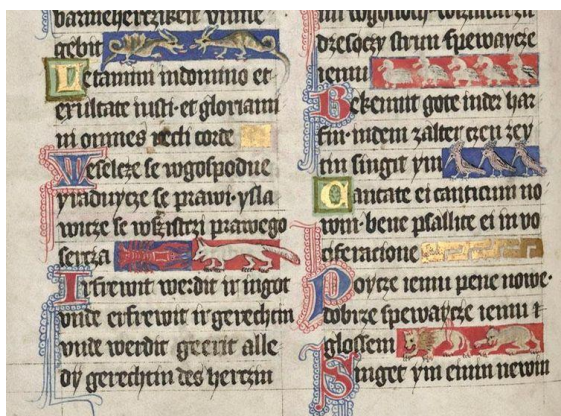 barmeherczikeit vmme
gebit
Letamini in domino et
exultate iusti · et gloriami
ni omnes recti corde
Weselcze se w gospodne
y raduycze se prawi · y sla
wicze se wszistczi prawego
sercza
Irfrewit werdit ir in got
vnde erfrewit ir gerechtin
vnde werdit geerit alle
dy gerechtin des herczin
dzesoczy strun spewaycze
iemu
Bekennit gote in der har
fin in dem zalter czen zey
tin singit ym
Cantate ei canticum no
vum · bene psallite ei in vo
ciferacione
Poycze iemu pene nowe ·
dobrze spewaycze iemu
glossem
Singet ym einin newin